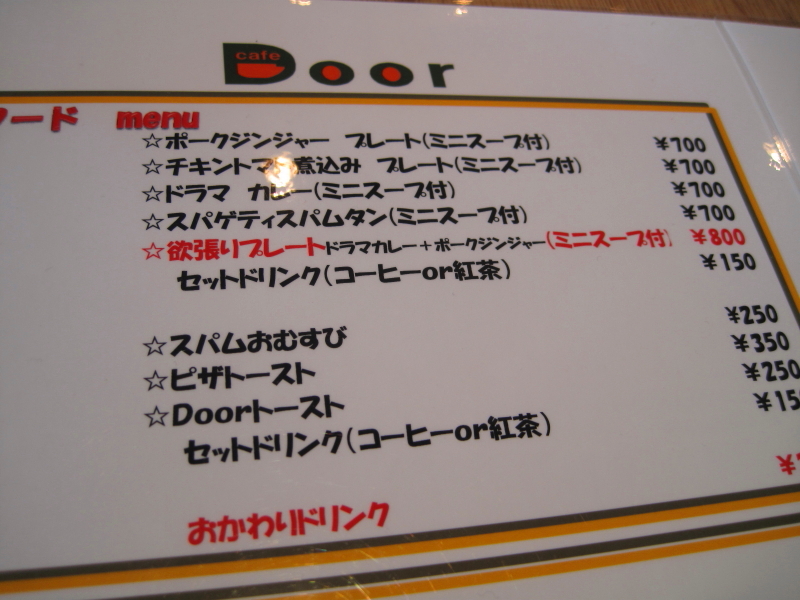 cafe
Door
フード menu
☆ポークジンジャー プレート(ミニスープ付) ¥700
☆チキントマト煮込み プレート(ミニスープ付) ¥700
☆ドラマ カレー(ミニスープ付) ¥700
☆スパゲティスパムタン(ミニスープ付) ¥700
☆欲張りプレートドラマカレー+ポークジンジャー(ミニスープ付) ¥800
セットドリンク(コーヒーor紅茶) ¥150
☆スパムおむすび ¥250
☆ピザトースト ¥350
☆Doorトースト ¥250
セットドリンク(コーヒーor紅茶) ¥150
おかわりドリンク